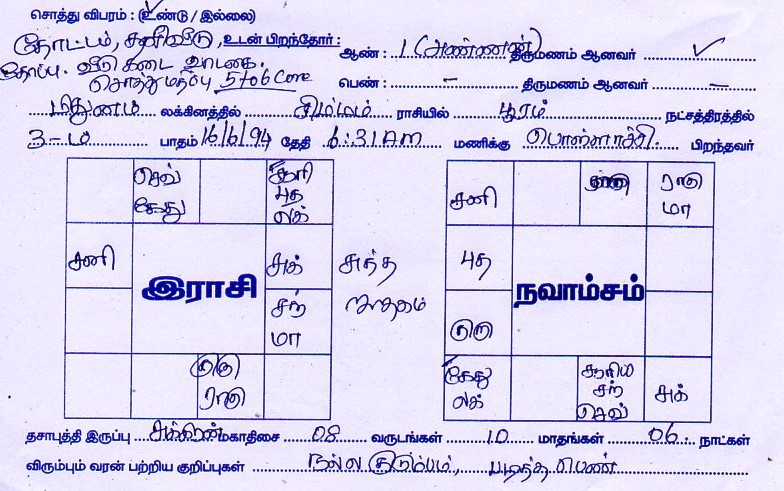 சொத்து விபரம் : (உண்டு / இல்லை)
தோட்டம், சனிவீடு, உடன் பிறந்தோர் : ஆண் : 1 (அண்ணன்) திருமணம் ஆனவர் ✓
தோப்பு. வீடு கடை வாடகை.
சொத்து மதிப்பு 5 to 6 Core பெண் : - திருமணம் ஆனவர் -
மிதுனம் லக்கினத்தில் சிம்மம் ராசியில் பூரம் நட்சத்திரத்தில்
3-ம் பாதம் 16/6/94 தேதி 6:31 AM மணிக்கு பொள்ளாச்சி பிறந்தவர்
செவ் கேது
சூரி புத லக்
சனி
இராசி
சுக்
சந் மா
குரு ராகு
சுத்த ஜாதகம்
சனி
ராகு மா
புத
நவாம்சம்
குரு
கேது லக்
சூரிய சந் செவ்
சுக்
தசாபுத்தி இருப்பு சுக்கிரன் மகாதிசை 08 வருடங்கள் 10 மாதங்கள் 06 நாட்கள்
விரும்பும் வரன் பற்றிய குறிப்புகள் நல்ல குடும்பம், படித்த பெண்